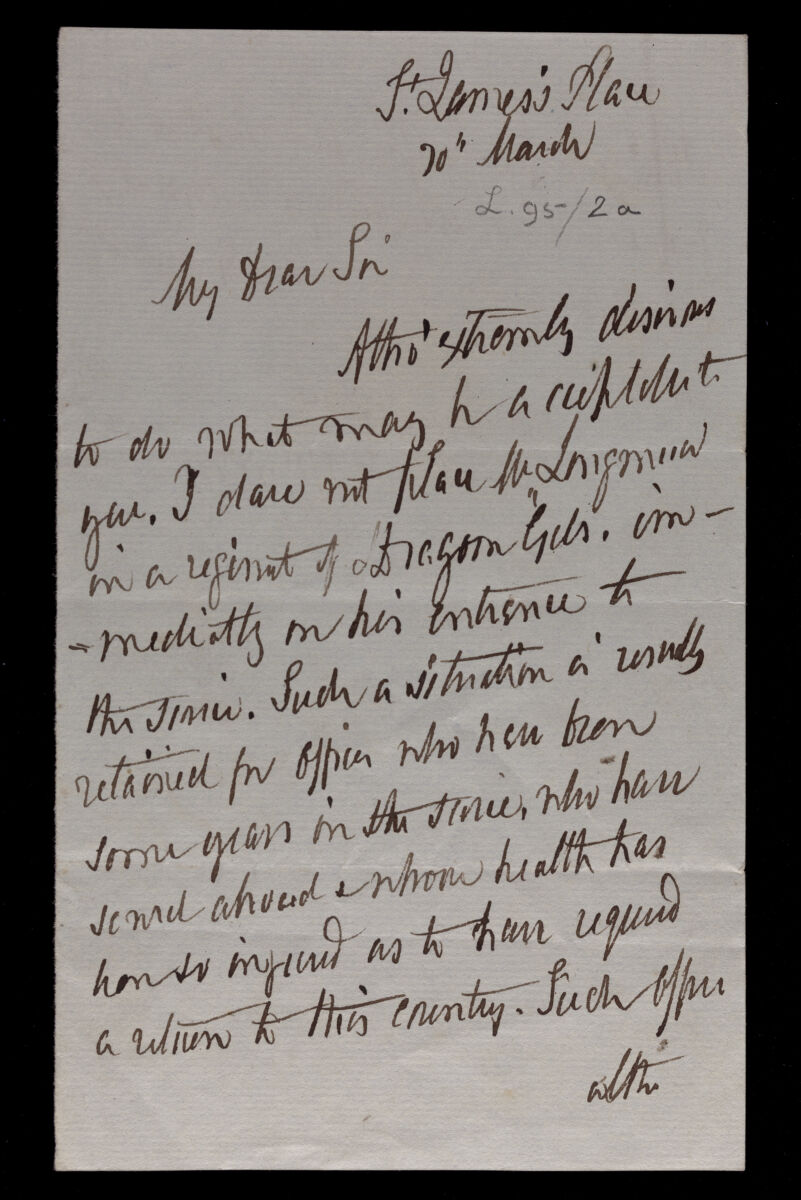 St. James's Place
20th March
L. 95/2a
My Dear Sir
Altho' extremely desirous
to do what may be acceptable to
you. I dare not place Mr Longmuir
in a regiment of Dragoon Gds. im-
-mediatly on his entrance to
the service. Such a situation is usually
retained for officers who have been
some years in the service, who have
served abroad & whose health has
been so injured as to have required
a return to this country. Such officers
altho